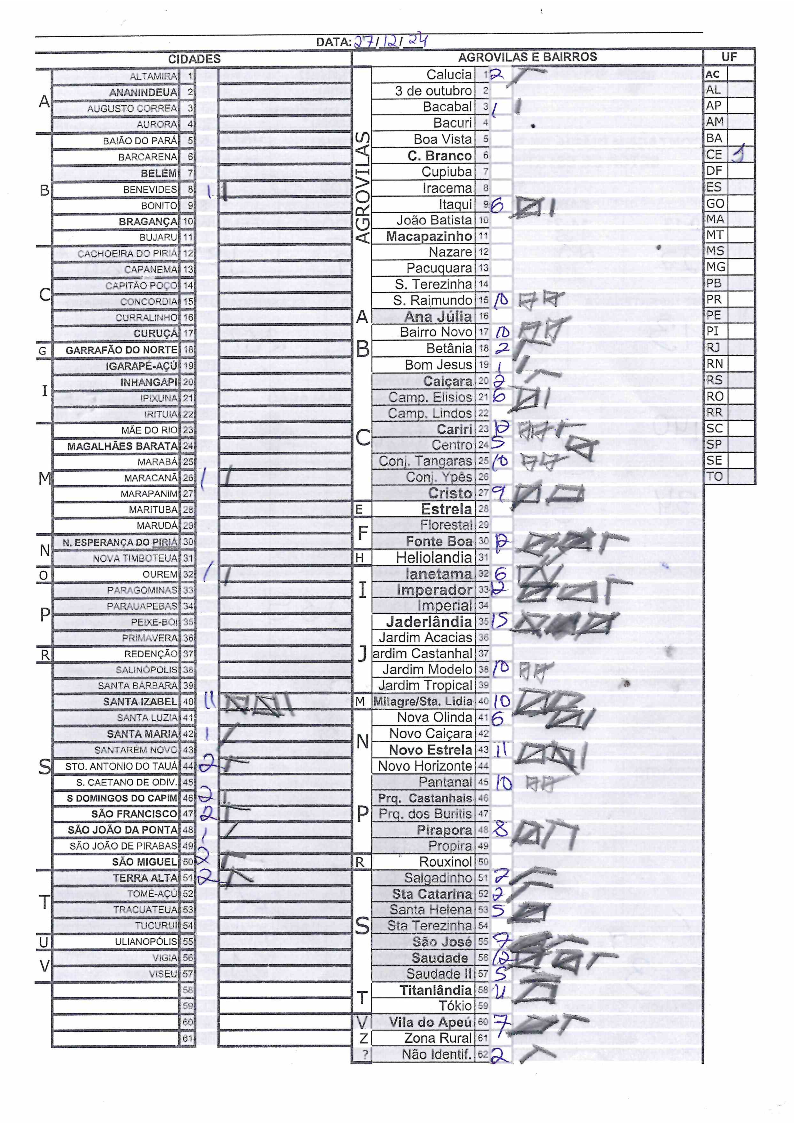 DATA: 27/12/24
CIDADES
A
ALTAMIRA 1
ANANINDEUA 2
AUGUSTO CORREA 3
AURORA 4
B
BAIÃO DO PARÁ 5
BARCARENA 6
BELÉM 7
BENEVIDES 8 1
BONITO 9
BRAGANÇA 10
BUJARU 11
C
CACHOEIRA DO PIRIÁ 12
CAPANEMA 13
CAPITÃO POÇO 14
CONCORDIA 15
CURRALINHO 16
CURUÇÁ 17
G
GARRAFÃO DO NORTE 18
I
IGARAPÉ-AÇÚ 19
INHANGAPI 20
IPIXUNA 21
IRITUIA 22
M
MÃE DO RIO 23
MAGALHÃES BARATA 24
MARABÁ 25
MARACANÃ 26 1
MARAPANIM 27
MARITUBA 28
MARUDÁ 29
N
N. ESPERANÇA DO PIRIÁ 30
NOVA TIMBOTEUA 31
O
OUREM 32 1
P
PARAGOMINAS 33
PARAUAPEBAS 34
PEIXE-BOI 35
PRIMAVERA 36
R
REDENÇÃO 37
S
SALINÓPOLIS 38
SANTA BÁRBARA 39
SANTA IZABEL 40 11
SANTA LUZIA 41
SANTA MARIA 42 1
SANTARÉM NOVO 43
STO. ANTONIO DO TAUÁ 44 2
S. CAETANO DE ODIV. 45
S DOMINGOS DO CAPIM 46 2
SÃO FRANCISCO 47 2
SÃO JOÃO DA PONTA 48 1
SÃO JOÃO DE PIRABAS 49
SÃO MIGUEL 50 2
T
TERRA ALTA 51 2
TOMÉ-AÇÚ 52
TRACUATEUA 53
TUCURUI 54
U
ULIANOPÓLIS 55
V
VIGIA 56
VISEU 57
58
59
60
61
AGROVILAS E BAIRROS
AGROVILAS
Calucia 1 2
3 de outubro 2
Bacabal 3 1
Bacuri 4
Boa Vista 5
C. Branco 6
Cupiuba 7
Iracema 8
Itaqui 9 6
João Batista 10
Macapazinho 11
Nazare 12
Pacuquara 13
S. Terezinha 14
S. Raimundo 15 10
A
Ana Júlia 16
B
Bairro Novo 17 10
Betânia 18 2
Bom Jesus 19 1
C
Caiçara 20 2
Camp. Elisios 21 6
Camp. Lindos 22
Cariri 23
Centro 24 5
Conj. Tangaras 25 10
Conj. Ypês 26
Cristo 27 9
E
Estrela 28
F
Florestal 29
Fonte Boa 30
H
Heliolandia 31
I
Ianetama 32 6
Imperador 33
Imperial 34
J
Jaderlândia 35 15
Jardim Acacias 36
ardim Castanhal 37
Jardim Modelo 38 10
Jardim Tropical 39
M
Milagre/Sta. Lidia 40 10
N
Nova Olinda 41 6
Novo Caiçara 42
Novo Estrela 43 11
Novo Horizonte 44
P
Pantanal 45 10
Prq. Castanhais 46
Prq. dos Buritis 47
Pirapora 48 8
Propira 49
R
Rouxinol 50
S
Salgadinho 51 2
Sta Catarina 52 2
Santa Helena 53 5
Sta Terezinha 54
São José 55 7
Saudade 56 12
Saudade II 57 5
T
Titanlândia 58 4
Tókio 59
V
Vila do Apeú 60 7
Z
Zona Rural 61
?
Não Identif. 62 2
UF
AC
AL
AP
AM
BA
CE 1
DF
ES
GO
MA
MT
MS
MG
PB
PR
PE
PI
RJ
RN
RS
RO
RR
SC
SP
SE
TO